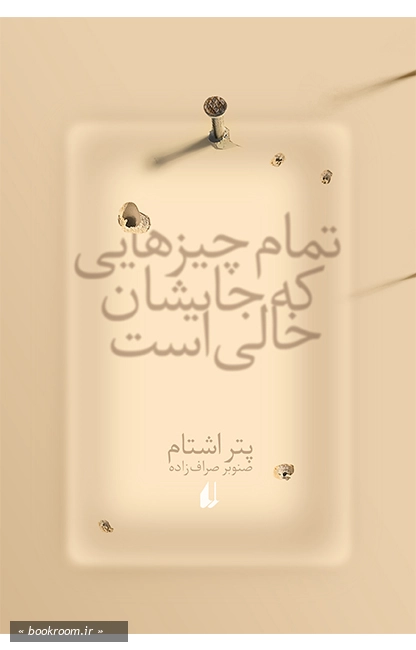 تمام چیزهایی
که جایشان
خالی است
پتر اشتام
صنوبر صراف‌زاده
« bookroom.ir »